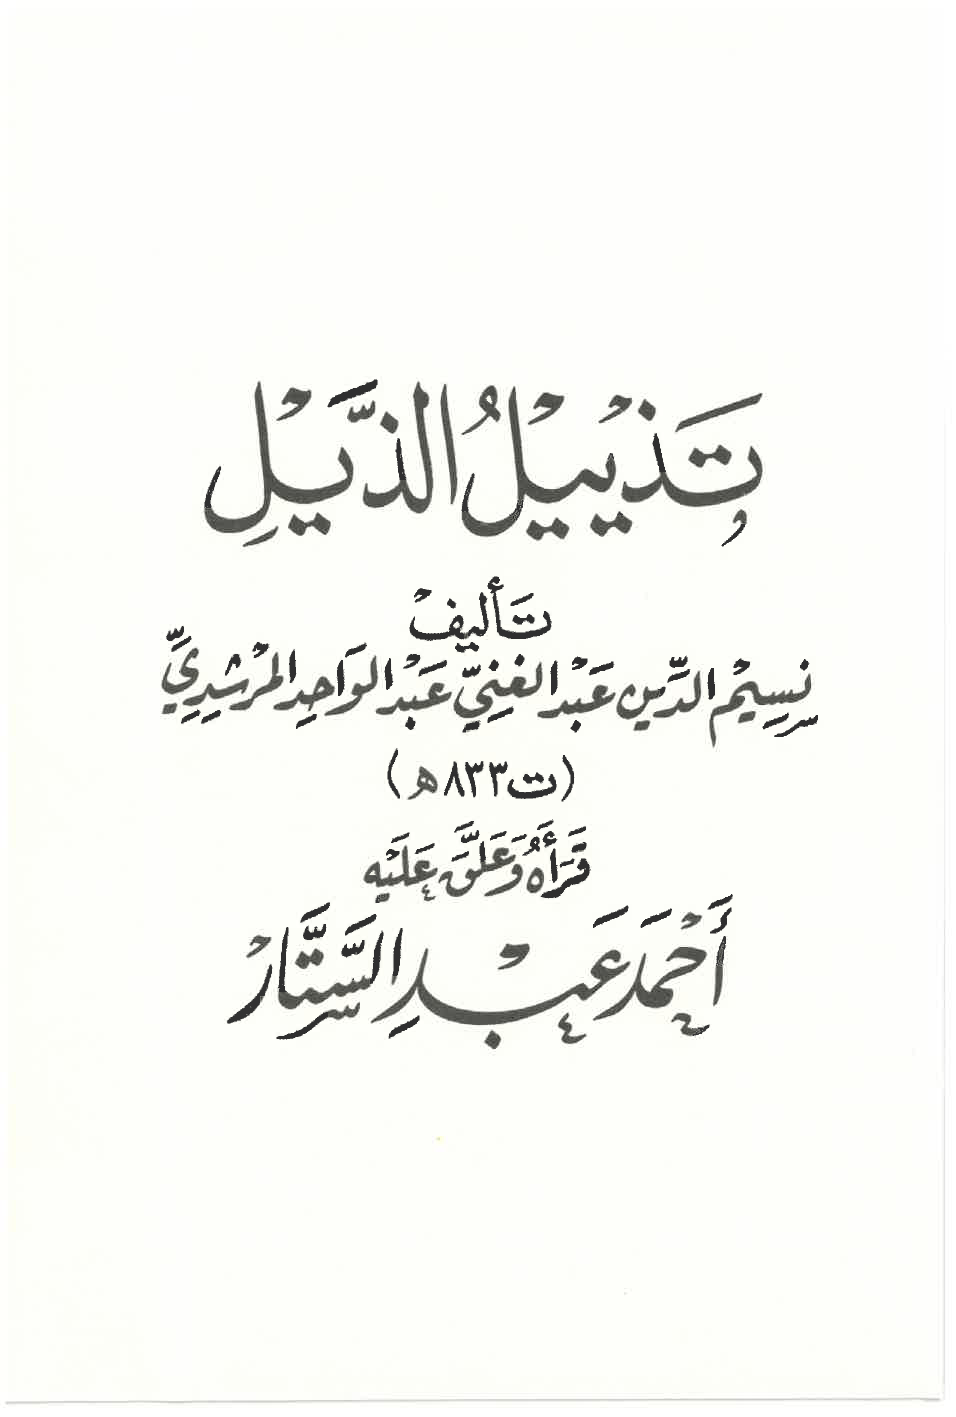 تَذْيِيْلُ الذَّيْلِ
تَأليفْ
نَسِيْم الدِّين عَبْد الغَنِيِّ عَبْد الوَاحِد المرْشِدِيِّ
(ت ٨٣٣ه)
قَرَأَهُ وَعَلَّقَ عَلَيْه
أَحْمَد عَبْدِ السَّتَّارْ